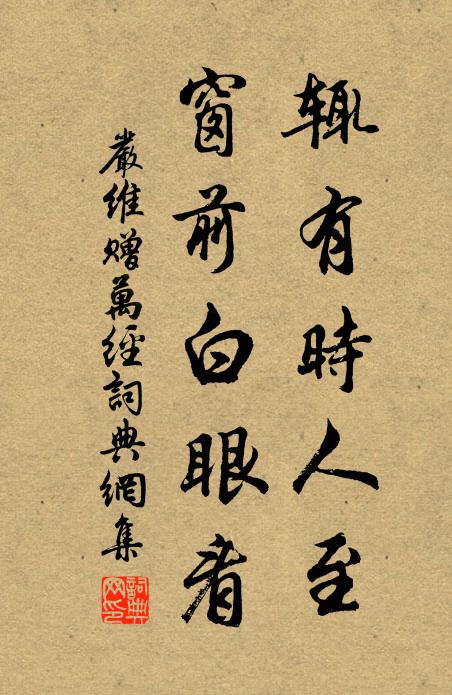 輒有時人至
窗前白眼看
嚴維贈萬經詞典網集
詞典網印